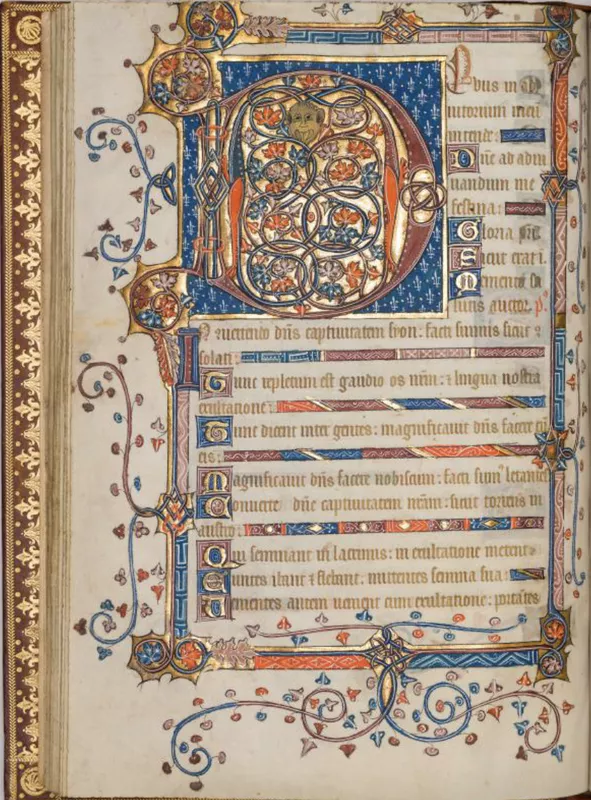 Deus in ad
iutorium meū
intende:
Dñe ad adiu
uandum me
festina:
Gloria pr̄i
Sicut erat i.
Memento sa
lutis auctor. p̄
In uertendo dñs captiuitatem syon: facti sumus sicut ꝯ
solati:
Tunc repletum est gaudio os nr̄m: ⁊ lingua nostra
exultatione:
Tunc dicent inter gentes: magnificauit dñs facere cū
eis:
Magnificauit dñs facere nobiscum: facti sumꝰ letantes
Conuerte dñe captiuitatem nr̄am: sicut torrens in
austro:
Qui seminant in lacrimis: in exultatione metent
Euntes ibant ⁊ flebant: mittentes semina sua:
Uenientes autem uenient cum exultatione: portātes